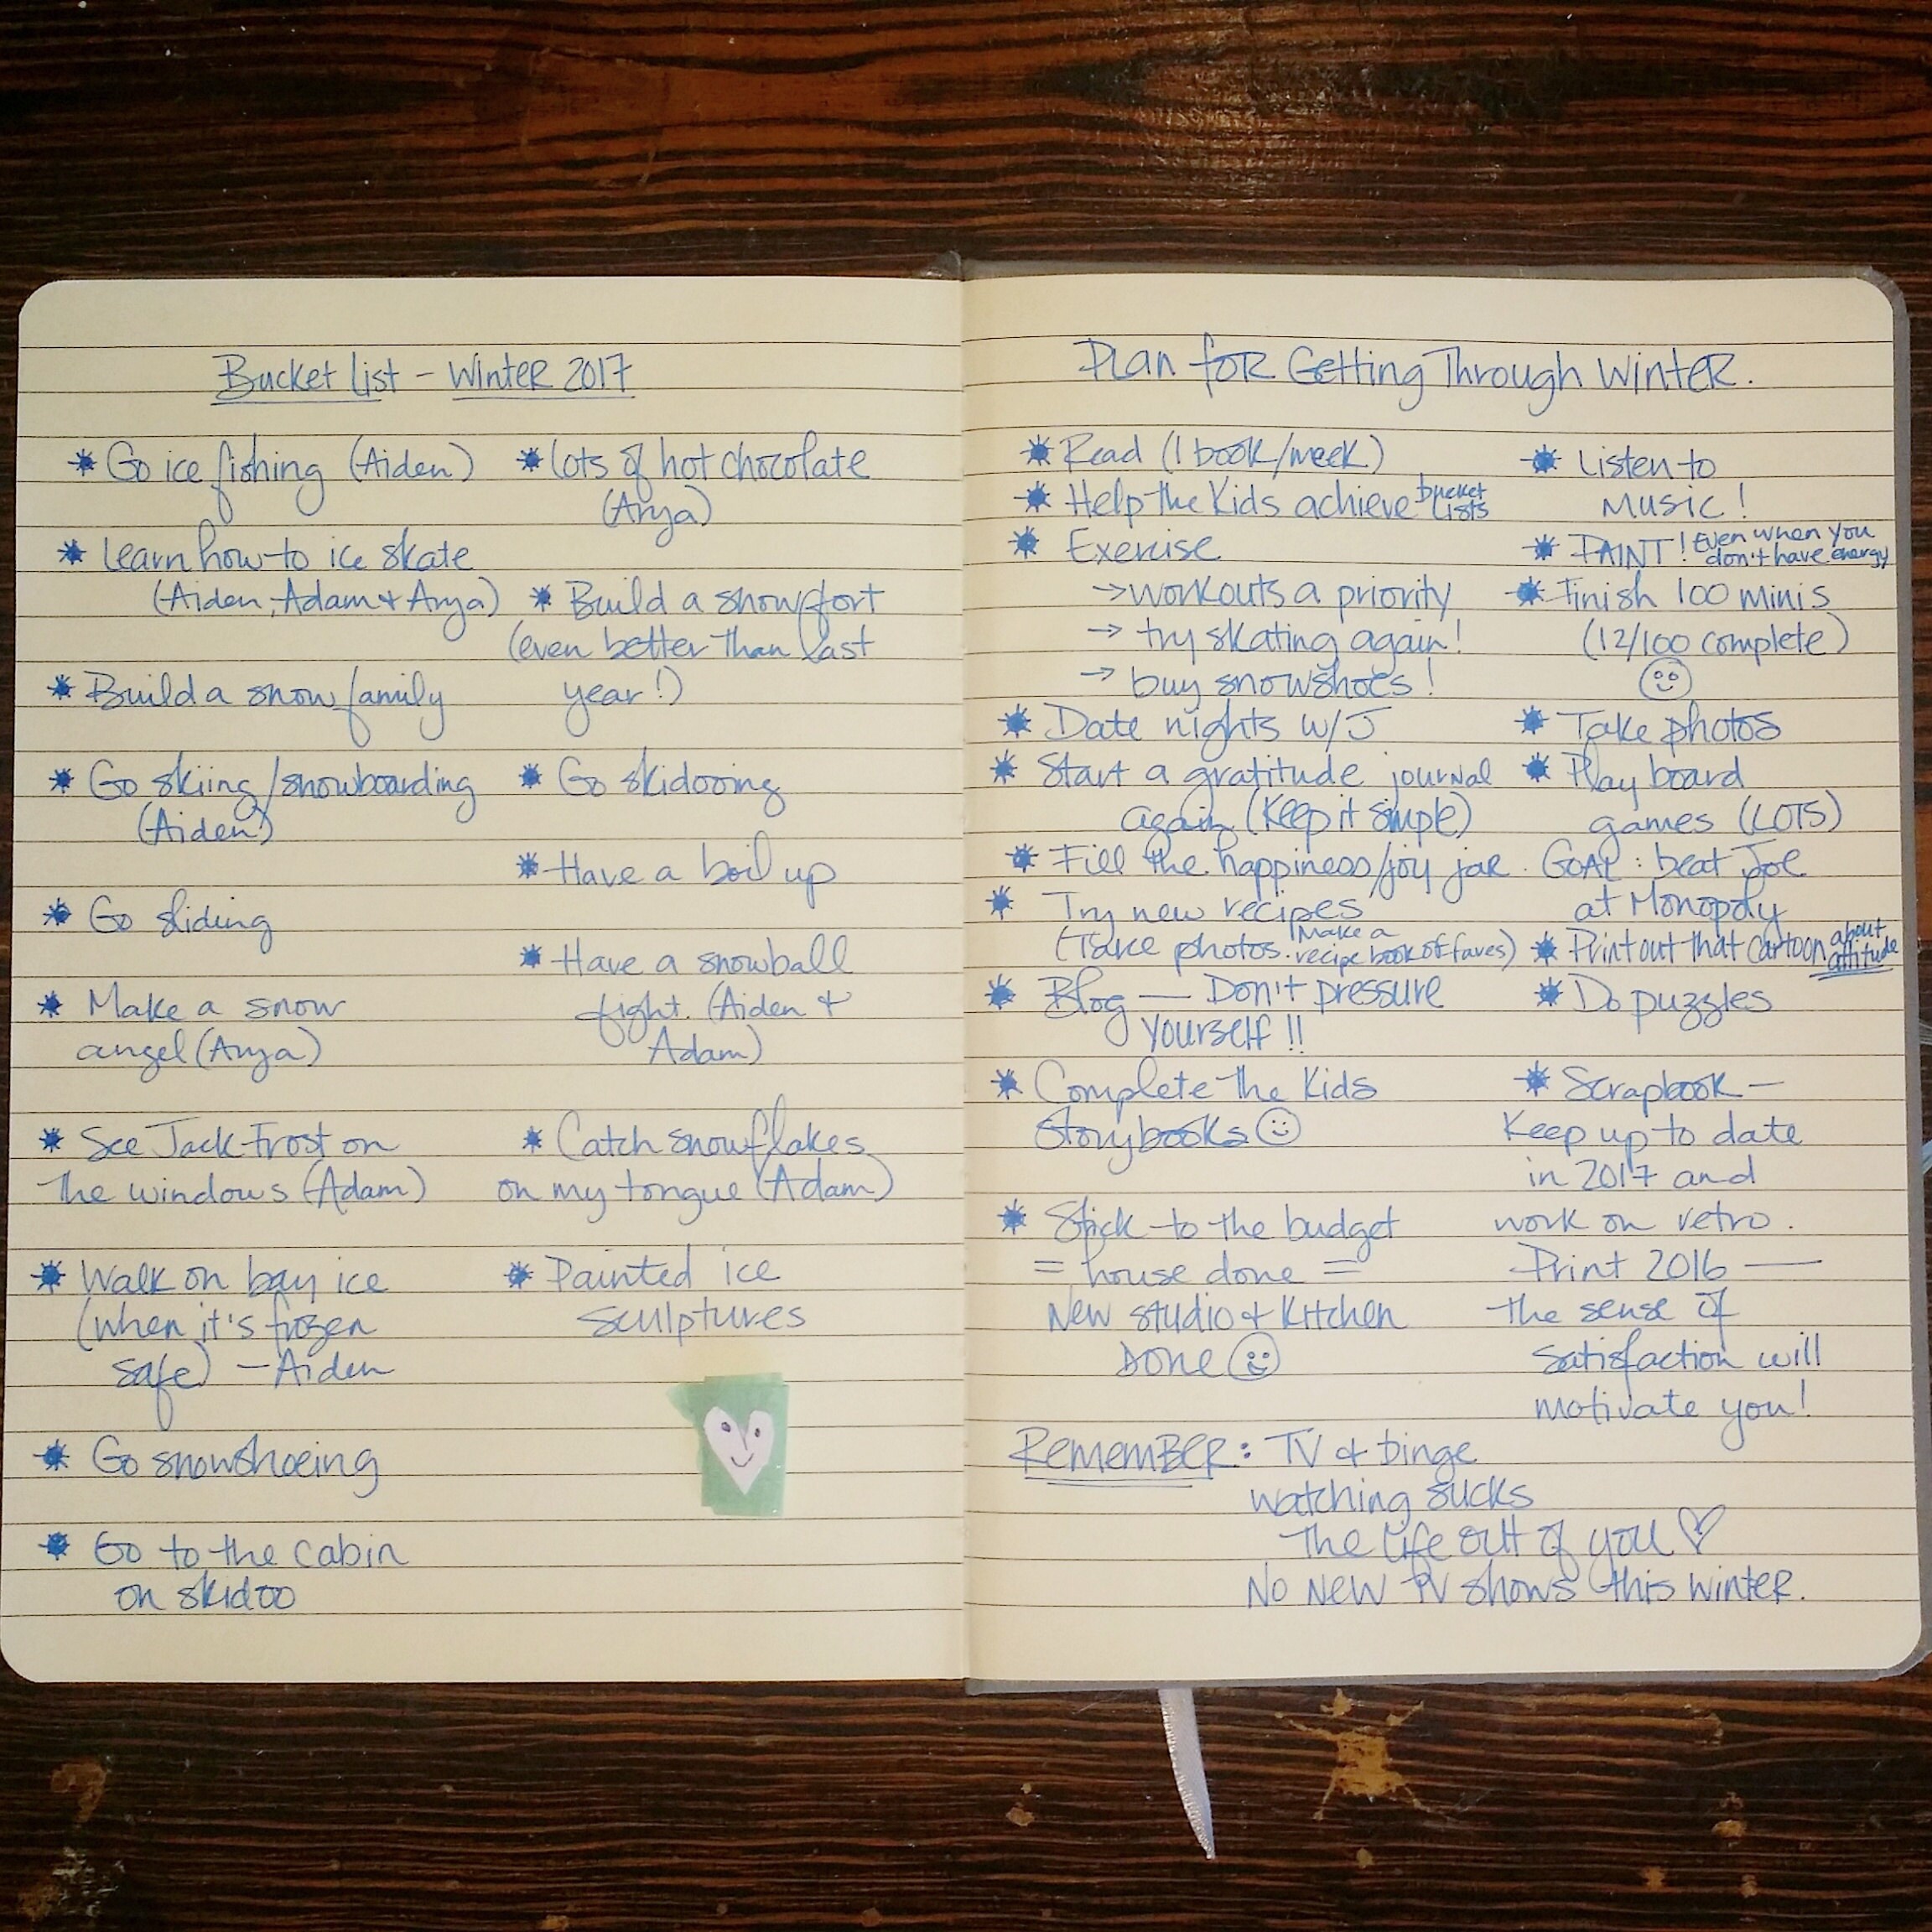 Bucket List - Winter 2017
* Go ice fishing (Aiden)
* Learn how to ice skate
(Aiden, Adam + Arya)
* Build a snow family
* Go skiing/snowboarding
(Aiden)
* Go sliding
* Make a snow
angel (Arya)
* See Jack Frost on
the windows (Adam)
* Walk on bay ice
(when it's frozen
safe) - Aiden
* Go snowshoeing
* Go to the cabin
on skidoo
* Lots of hot chocolate
(Arya)
* Build a snowfort
(even better than last
year!)
* Go skidooing
* Have a boil up
* Have a snowball
fight. (Aiden +
Adam)
* Catch snowflakes
on my tongue (Adam)
* Painted ice
sculptures
Plan for Getting Through Winter.
* Read (1 book/week)
* Help the Kids achieve bucket
lists
* Exercise
→ workouts a priority
→ try skating again!
→ buy snowshoes!
* Date nights w/J
* Start a gratitude journal
again (Keep it simple)
* Fill the happiness/joy jar.
* Try new recipes
(Take photos. Make a
recipe book of faves)
* Blog — Don't pressure
yourself!!
* Complete the Kids
Storybooks ☺
* Stick to the budget
= house done =
New studio + Kitchen
DONE ☺
* Listen to
Music!
* PAINT! Even when you
don't have energy
* Finish 100 minis
(12/100 complete)
☺
* Take photos
* Play board
games (LOTS)
GOAL: beat Joe
at Monopoly
* Print out that cartoon about
attitude
* Do puzzles
* Scrapbook —
Keep up to date
in 2017 and
work on retro.
Print 2016 —
the sense of
satisfaction will
motivate you!
Remember: TV + binge
watching sucks
the life out of you ♡
No New TV shows this winter.